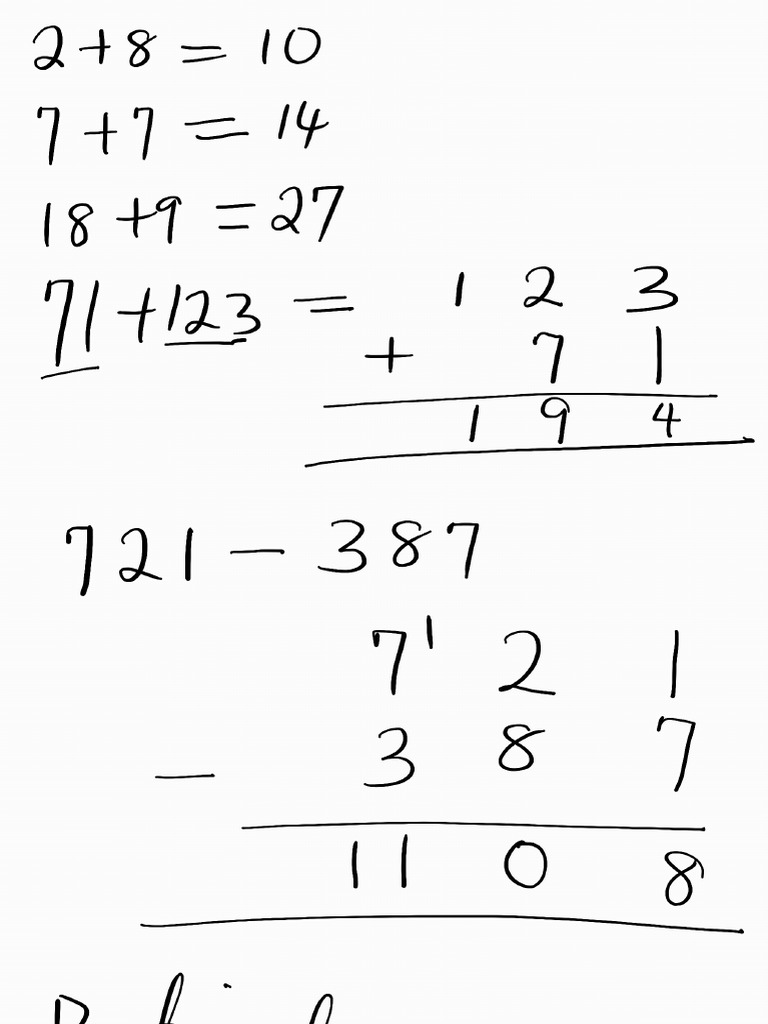 2+8 = 10
7+7 = 14
18+9 = 27
71+123 = 1 2 3
+ 7 1
1 9 4
721 - 387
7 1 2 1
- 3 8 7
11 0 8